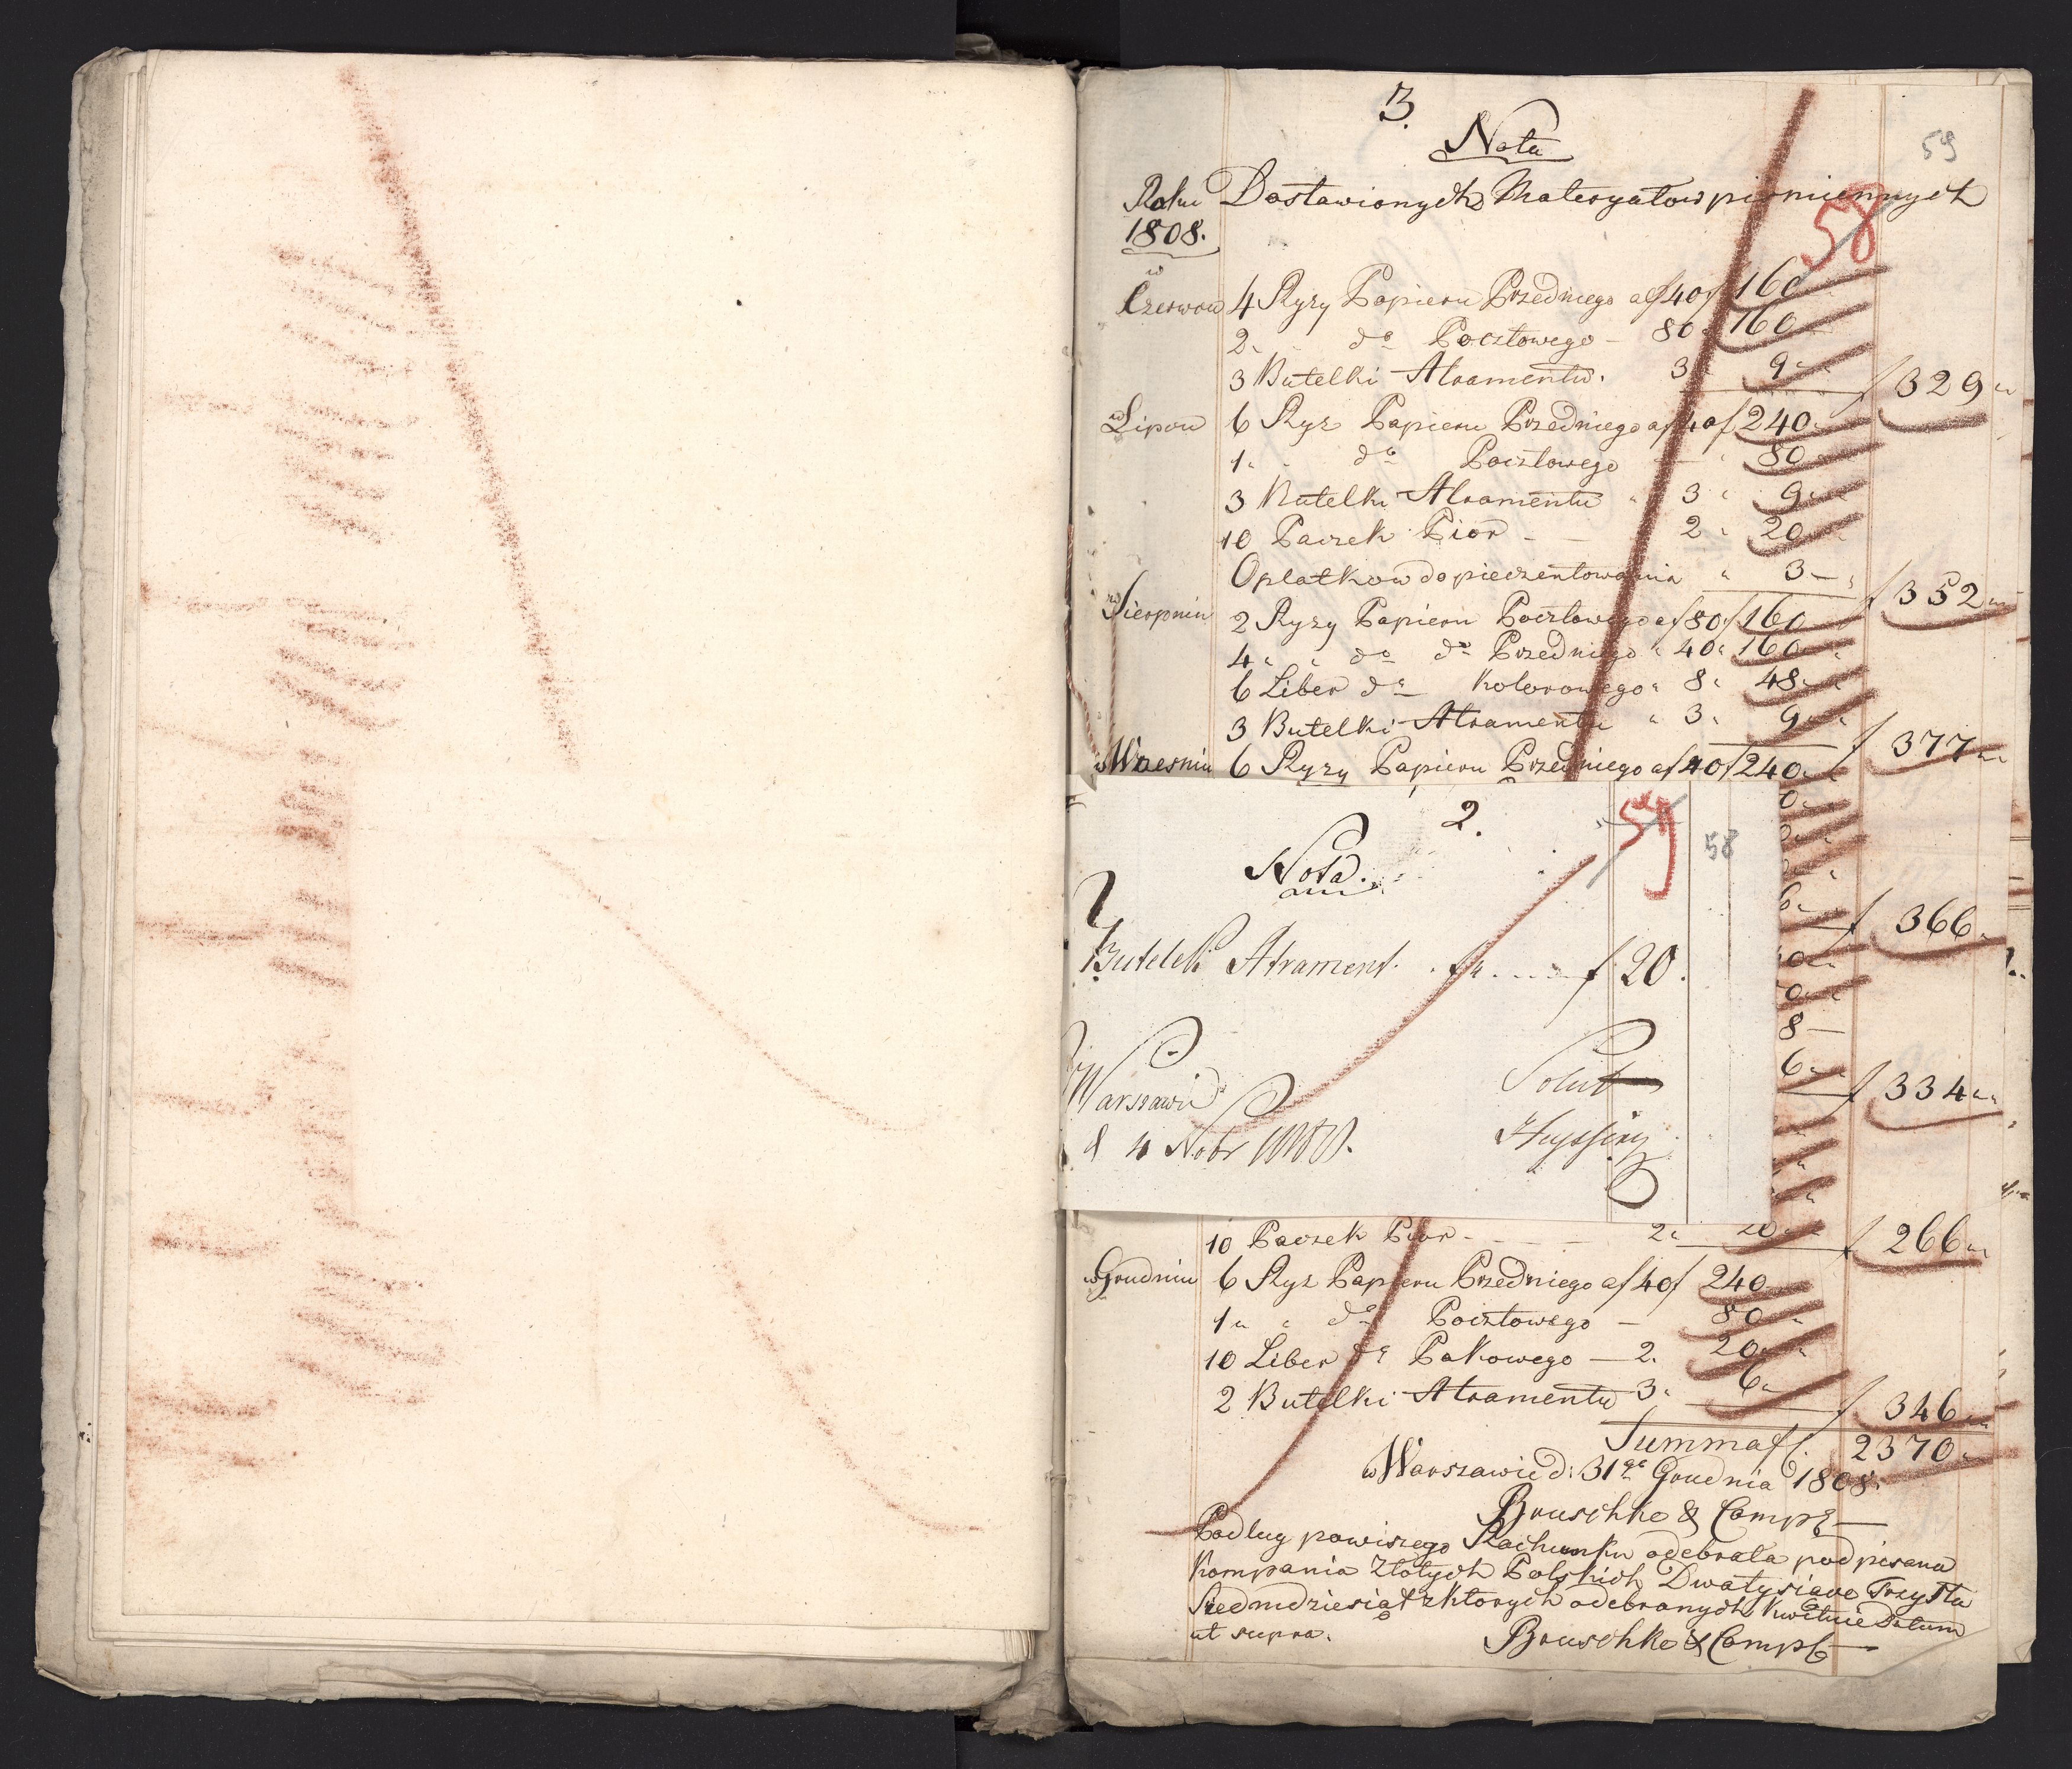 3.
Nota
59
Roku Dostawionych Materyałow pismiennych
1808.
58
w Czerwcu 4 Ryzy Papieru Przedniego a f 40 f 160
2 " " do Pocztowego – 80 " 160
3 Butelki Atramentu. 3 " 9 " f 329 "
w Lipcu 6 Ryz Papieru Przedniego a f 40 f 240 "
1 " " do Pocztowego — " 80 "
3 Butelki Atramentu " 3 " 9 "
10 Paczek Pior – – 2 " 20 "
Opłatkow do pieczentowania " 3 — f 352 "
w Sierpniu 2 Ryzy Papieru Pocztowego a f 80 f 160
4 " " do do Przedniego " 40 " 160 "
6 Liber do Kolorowego " 8 " 48 "
3 Butelki Atramentu " 3 " 9 " f 377 "
w Wrzesniu 6 Ryzy Papieru Przedniego a f 40 f 240 "
2.
59
58
Nota.
0 "
Butelek Atrament. f 20.
6 " f 366 "
0 "
0 "
8 —
6 " f 334 "
Warszawie Solut
d 4 Nobr Huyssing
10 Paczek Pior - - - - 2 " 20 " f 266 "
w Grudniu 6 Ryz Papieru Przedniego a f 40 f 240
1 " " do Pocztowego – 80 "
10 Liber do Pakowego — 2. 20 "
2 Butelki Atramentu 3 " 6 " f 346 "
Summa f. 2370 "
w Warszawie d: 31go Grudnia 1808.
Bruschke & Comp
Podlug powiszego Rachunku odebrała podpisana
Kompania Złotych Polskich Dwatysiące Trzysta
Siedmdziesiąt z ktorych odebranych kwituie Datum
ut supra.
Bruschke & Comp